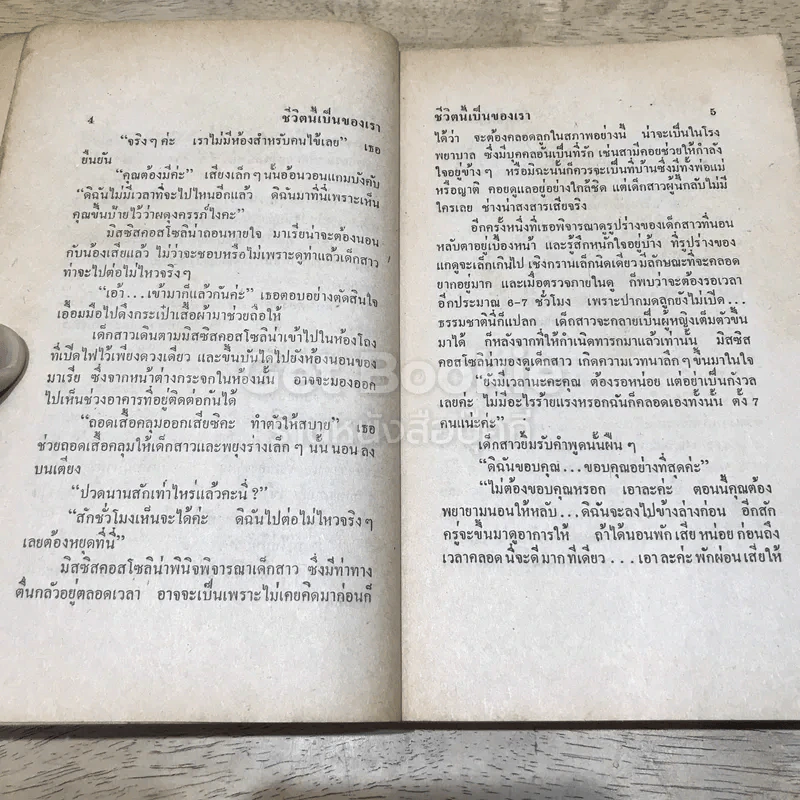 4 ชีวิตนี้เป็นของเรา
“จริงๆ ค่ะ เราไม่มีห้องสำหรับคนไข้เลย” เธอ
ยืนยัน
“คุณต้องมีค่ะ” เสียงเล็กๆ นั้นอ้อนวอนแถมบังคับ
“ดิฉันไม่มีเวลาที่จะไปไหนอีกแล้ว ดิฉันมาที่นี่เพราะเห็น
คุณขึ้นป้ายไว้ว่าผดุงครรภ์ไงคะ”
มิสซิสคอสโซลิน่าถอนหายใจ มาเรียน่าจะต้องนอน
กับน้องเสียแล้ว ไม่ว่าจะชอบหรือไม่เพราะดูท่าแล้วเด็กสาว
ท่าจะไปต่อไม่ไหวจริงๆ
“เอ้า...เข้ามาก็แล้วกันค่ะ” เธอตอบอย่างตัดสินใจ
เอื้อมมือไปดึงกระเป๋าเสื้อผ้ามาช่วยถือให้
เด็กสาวเดินตามมิสซิสคอสโซลิน่าเข้าไปในห้องโถง
ที่เปิดไฟไว้เพียงดวงเดียว และขึ้นบันไดไปยังห้องนอนของ
มาเรีย ซึ่งจากหน้าต่างกระจกในห้องนั้น อาจจะมองออก
ไปเห็นช่วงอาคารที่อยู่ติดต่อกันได้
“ถอดเสื้อคลุมออกเสียซิคะ ทำตัวให้สบาย” เธอ
ช่วยถอดเสื้อคลุมให้เด็กสาวและพยุงร่างเล็กๆ นั้น นอน ลง
บนเตียง
“ปวดนานสักเท่าไหร่แล้วคะนี่ ?”
“สักชั่วโมงเห็นจะได้ค่ะ ดิฉันไปต่อไม่ไหวจริงๆ
เลยต้องหยุดที่นี่”
มิสซิสคอสโซลิน่าพินิจพิจารณาเด็กสาว ซึ่งมีท่าทาง
ตื่นกลัวอยู่ตลอดเวลา อาจจะเป็นเพราะไม่เคยคิดมาก่อนก็
ชีวิตนี้เป็นของเรา 5
ได้ว่า จะต้องคลอดลูกในสภาพอย่างนี้ น่าจะเป็นในโรง
พยาบาล ซึ่งมีบุคคลอันเป็นที่รัก เช่นสามีคอยช่วยให้กำลัง
ใจอยู่ข้างๆ หรือมิฉะนั้นก็ควรจะเป็นที่บ้านซึ่งมีทั้งพ่อแม่
หรือญาติ คอยดูแลอยู่อย่างใกล้ชิด แต่เด็กสาวผู้นี้กลับไม่มี
ใครเลย ช่างน่าสงสารเสียจริง
อีกครั้งหนึ่งที่เธอพิจารณาดูรูปร่างของเด็กสาวที่นอน
หลับตาอยู่เบื้องหน้า และรู้สึกหนักใจอยู่บ้าง ที่รูปร่างของ
แกดูจะเล็กเกินไป เชิงกรานเล็กนิดเดียว มีลักษณะที่จะคลอด
ยากอยู่มาก และเมื่อตรวจภายในดู ก็พบว่าจะต้องรอเวลา
อีกประมาณ 6-7 ชั่วโมง เพราะปากมดลูกยังไม่เปิด...
ธรรมชาตินี่ก็แปลก เด็กสาวจะกลายเป็นผู้หญิงเต็มตัวขึ้น
มาได้ ก็หลังจากที่ให้กำเนิดทารกมาแล้วเท่านั้น มิสซิส
คอสโซลิน่ามองดูเด็กสาว เกิดความเวทนาลึกๆ ขึ้นมาในใจ
“ยังมีเวลานะคะคุณ ต้องรอหน่อย แต่อย่าเป็นกังวล
เลยค่ะ ไม่มีอะไรร้ายแรงหรอกฉันก็คลอดเองทั้งนั้น ตั้ง 7
คนแน่ะค่ะ”
เด็กสาวยิ้มรับคำพูดนั้นฝืน ๆ
“ดิฉันขอบคุณ...ขอบคุณอย่างที่สุดค่ะ”
“ไม่ต้องขอบคุณหรอก เอาละค่ะ ตอนนี้คุณต้อง
พยายามนอนให้หลับ...ดิฉันจะลงไปข้างล่างก่อน อีกสัก
ครู่จะขึ้นมาดูอาการให้ ถ้าได้นอนพัก เสีย หน่อย ก่อนถึง
เวลาคลอด นี่จะดี มาก ที่เดียว...เอา ละค่ะ พักผ่อน เสียให้